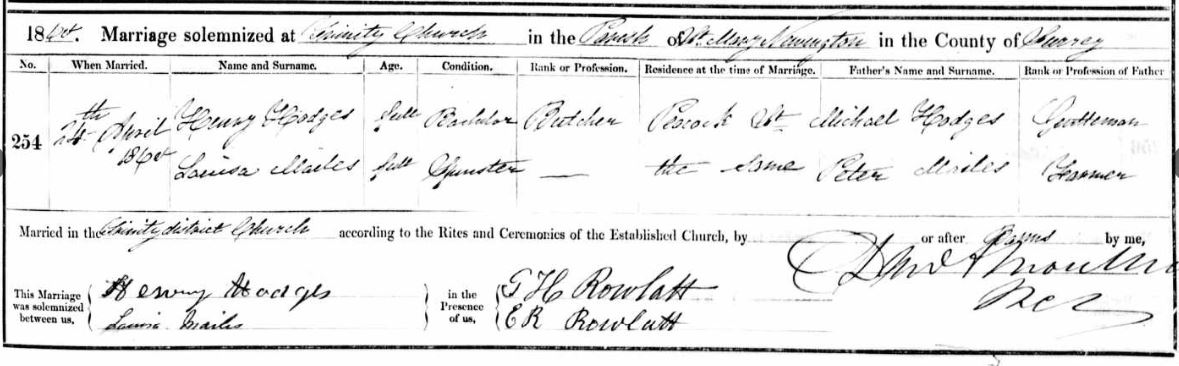 Marriage solemnized at Trinity Church in the Parish of St. Mary Newington in the County of Surrey
No. When Married. Name and Surname. Age. Condition. Rank or Profession. Residence at the time of Marriage. Father's Name and Surname. Rank or Profession of Father
254 April Henry Hodges full Bachelor Butcher Peacock St Michael Hodges Gentleman
Louisa Mailes full Spinster — the same Peter Mailes Farmer
Married in the Trinity district Church according to the Rites and Ceremonies of the Established Church, by or after Banns by me,
This Marriage was solemnized between us, Henry Hodges in the Presence of us, G H Rowlatt
Louisa Mailes E R Rowlatt